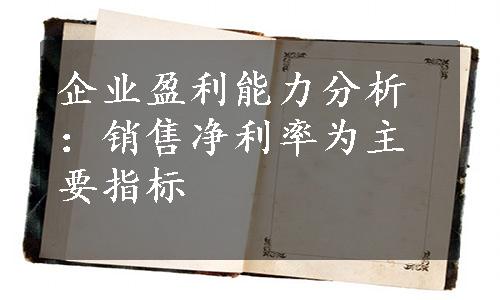 企业盈利能力分析
：销售净利率为主
要指标